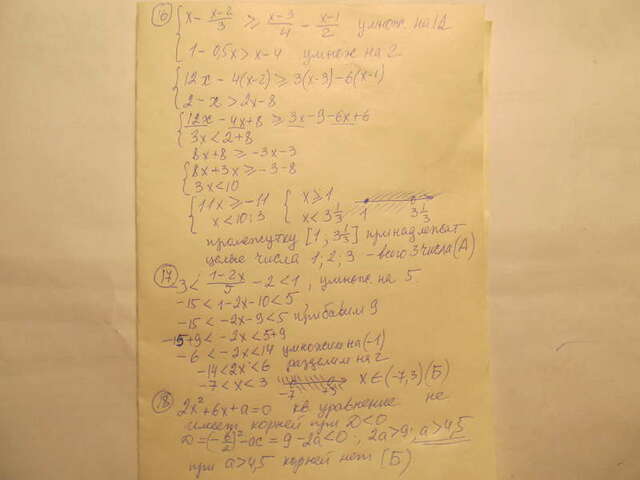 16) { x - (x-2)/3 ≥ (x-3)/4 - (x-1)/2 умнож на 12
1 - 0,5x > x - 4 умнож на 2
{ 12x - 4(x-2) ≥ 3(x-3) - 6(x-1)
2 - x > 2x - 8
{ 12x - 4x + 8 ≥ 3x - 9 - 6x + 6
3x < 2 + 8
8x + 8 ≥ -3x - 3
{ 8x + 3x ≥ -3 - 8
3x < 10
{ 11x ≥ -11 { x ≥ 1
x < 10:3 x < 3 1/3 1 3 1/3
промежутку [1; 3 1/3] принадлежат
целые числа 1; 2; 3 - всего 3 числа (А)
17) -3 < (1-2x)/5 - 2 < 1, умнож на 5
-15 < 1 - 2x - 10 < 5
-15 < -2x - 9 < 5 прибавим 9
-15+9 < -2x < 5+9
-6 < -2x < 14 умножим на (-1)
-14 < 2x < 6 разделим на 2
-7 < x < 3 -7 3 x ∈ (-7; 3) (Б)
18) 2x² + 6x + a = 0 кв уравнение не
имеет корней при D < 0
D = (-6/2)² - ac = 9 - 2a < 0; 2a > 9; a > 4,5
при a > 4,5 корней нет (Б)